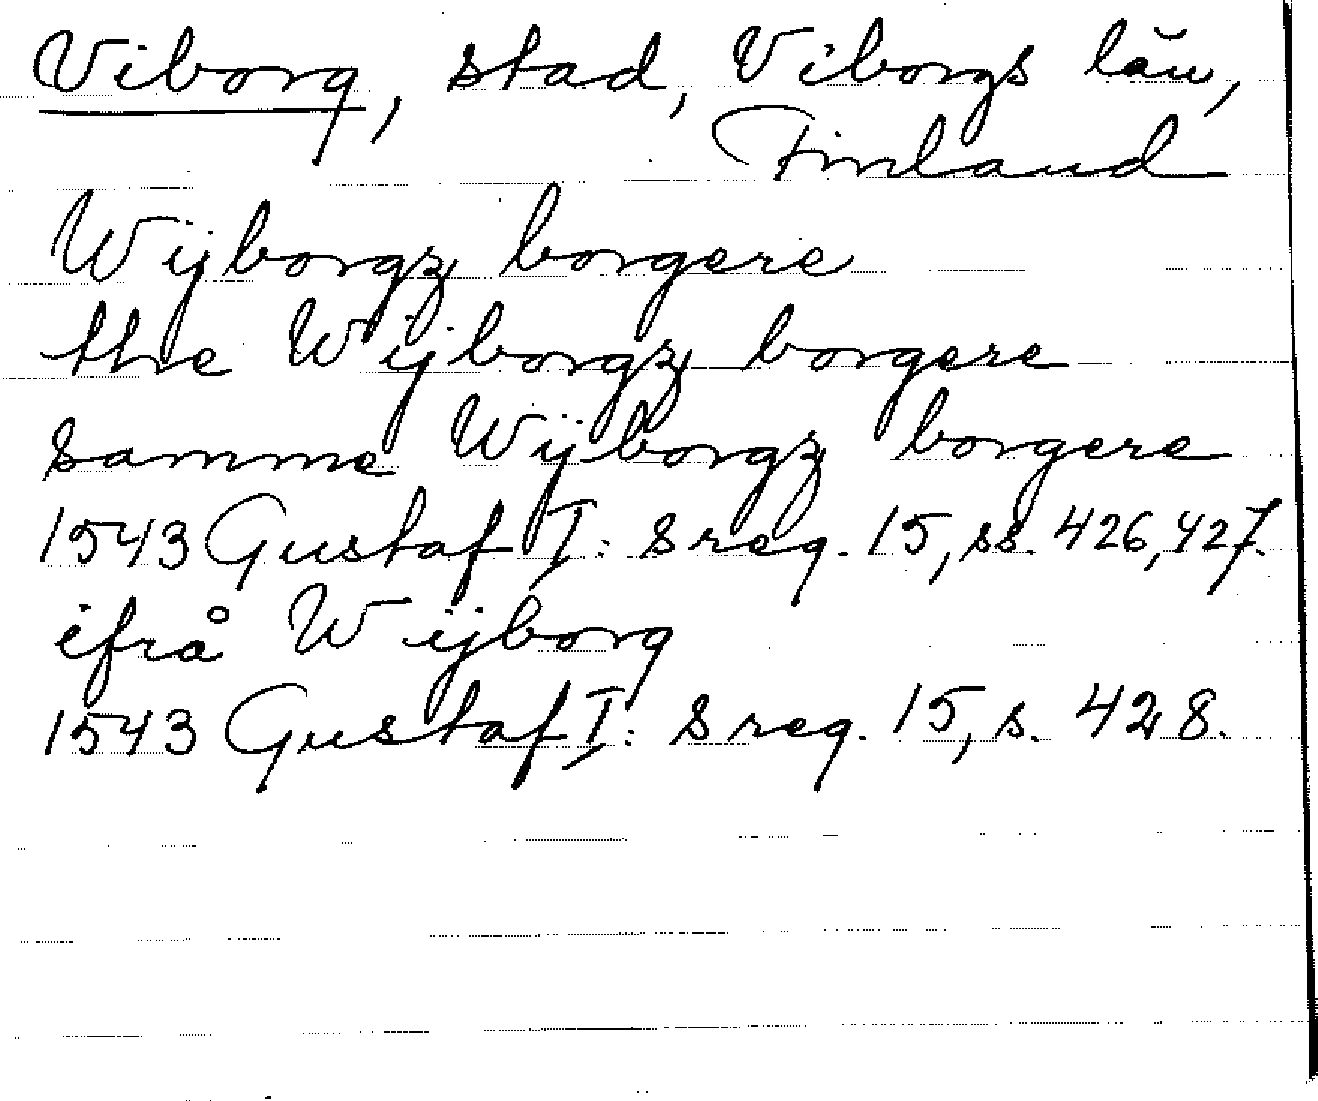 Viborg, stad, Viborgs län,
Finland
Wijborgz borgere
the Wijborgz borgere
samme Wijborgz borgere
1543 Gustaf I: s reg. 15, ss. 426, 427.
ifrå Wijborg
1543 Gustaf I: s reg. 15, s. 428.